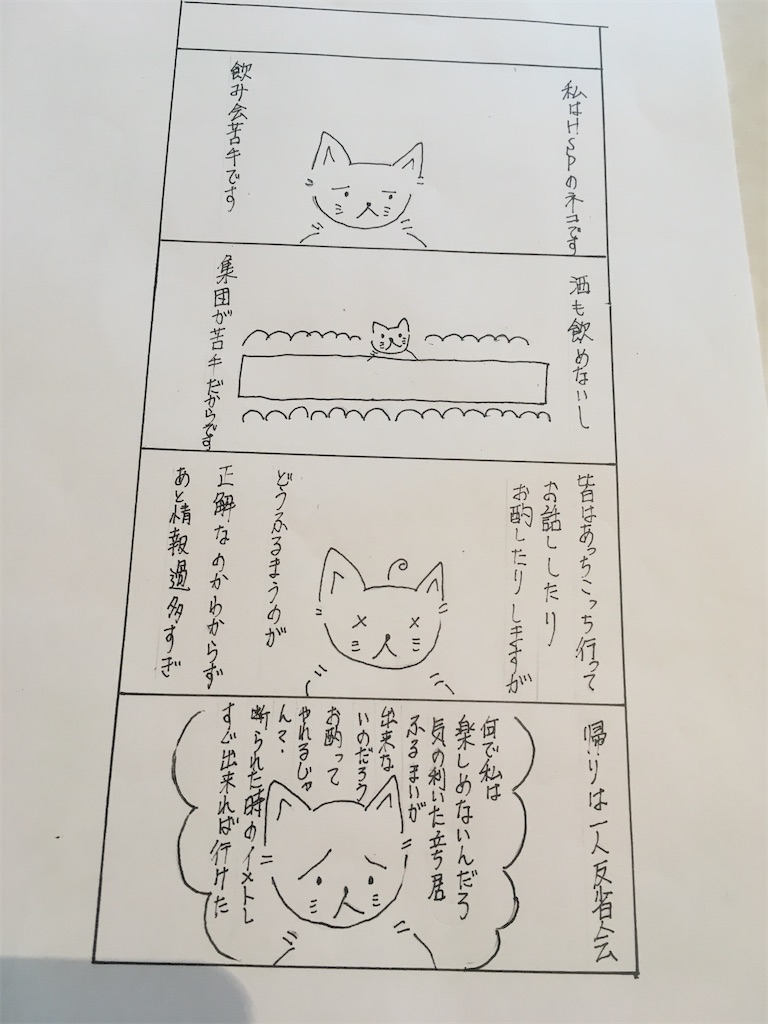 私はHSPのネコです
飲み会苦手です
酒も飲めないし
集団が苦手だからです
皆はあっちこっち行って
お話ししたり
お酌したりしますが
どうふるまうのが
正解なのかわからず
あと情報過多すぎ
帰りは一人反省会
何で私は
楽しめないんだろ
気の利いた立ち居
ふるまいが
出来な
いのだろう
お酌って
やれるじゃ
んマ・
断られた時のイメトレ
すぐ出来れば行けた